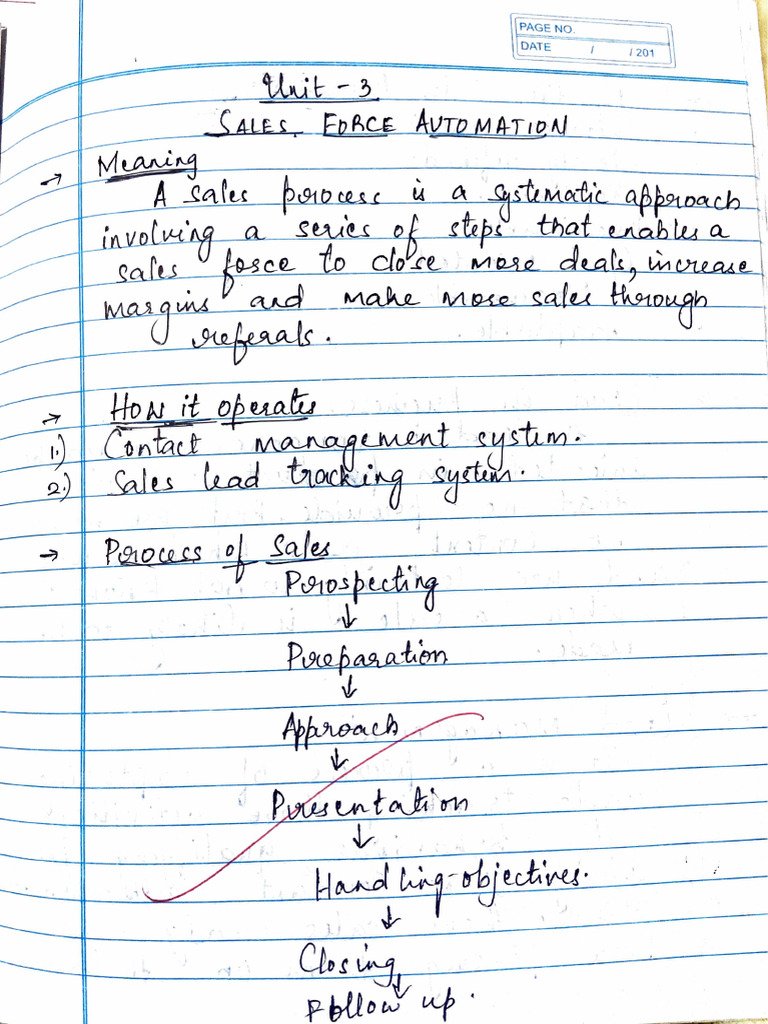 PAGE NO.
DATE / / 201
Unit - 3
SALES FORCE AUTOMATION
→ Meaning
A sales process is a systematic approach
involving a series of steps that enables a
sales force to close more deals, increase
margins and make more sales through
referals.
→ How it operates
1.) Contact management system.
2.) Sales lead tracking system.
→ Process of Sales
Prospecting
↓
Preparation
↓
Approach
↓
Presentation
↓
Handling-objectives.
↓
Closing
↓
Follow up.